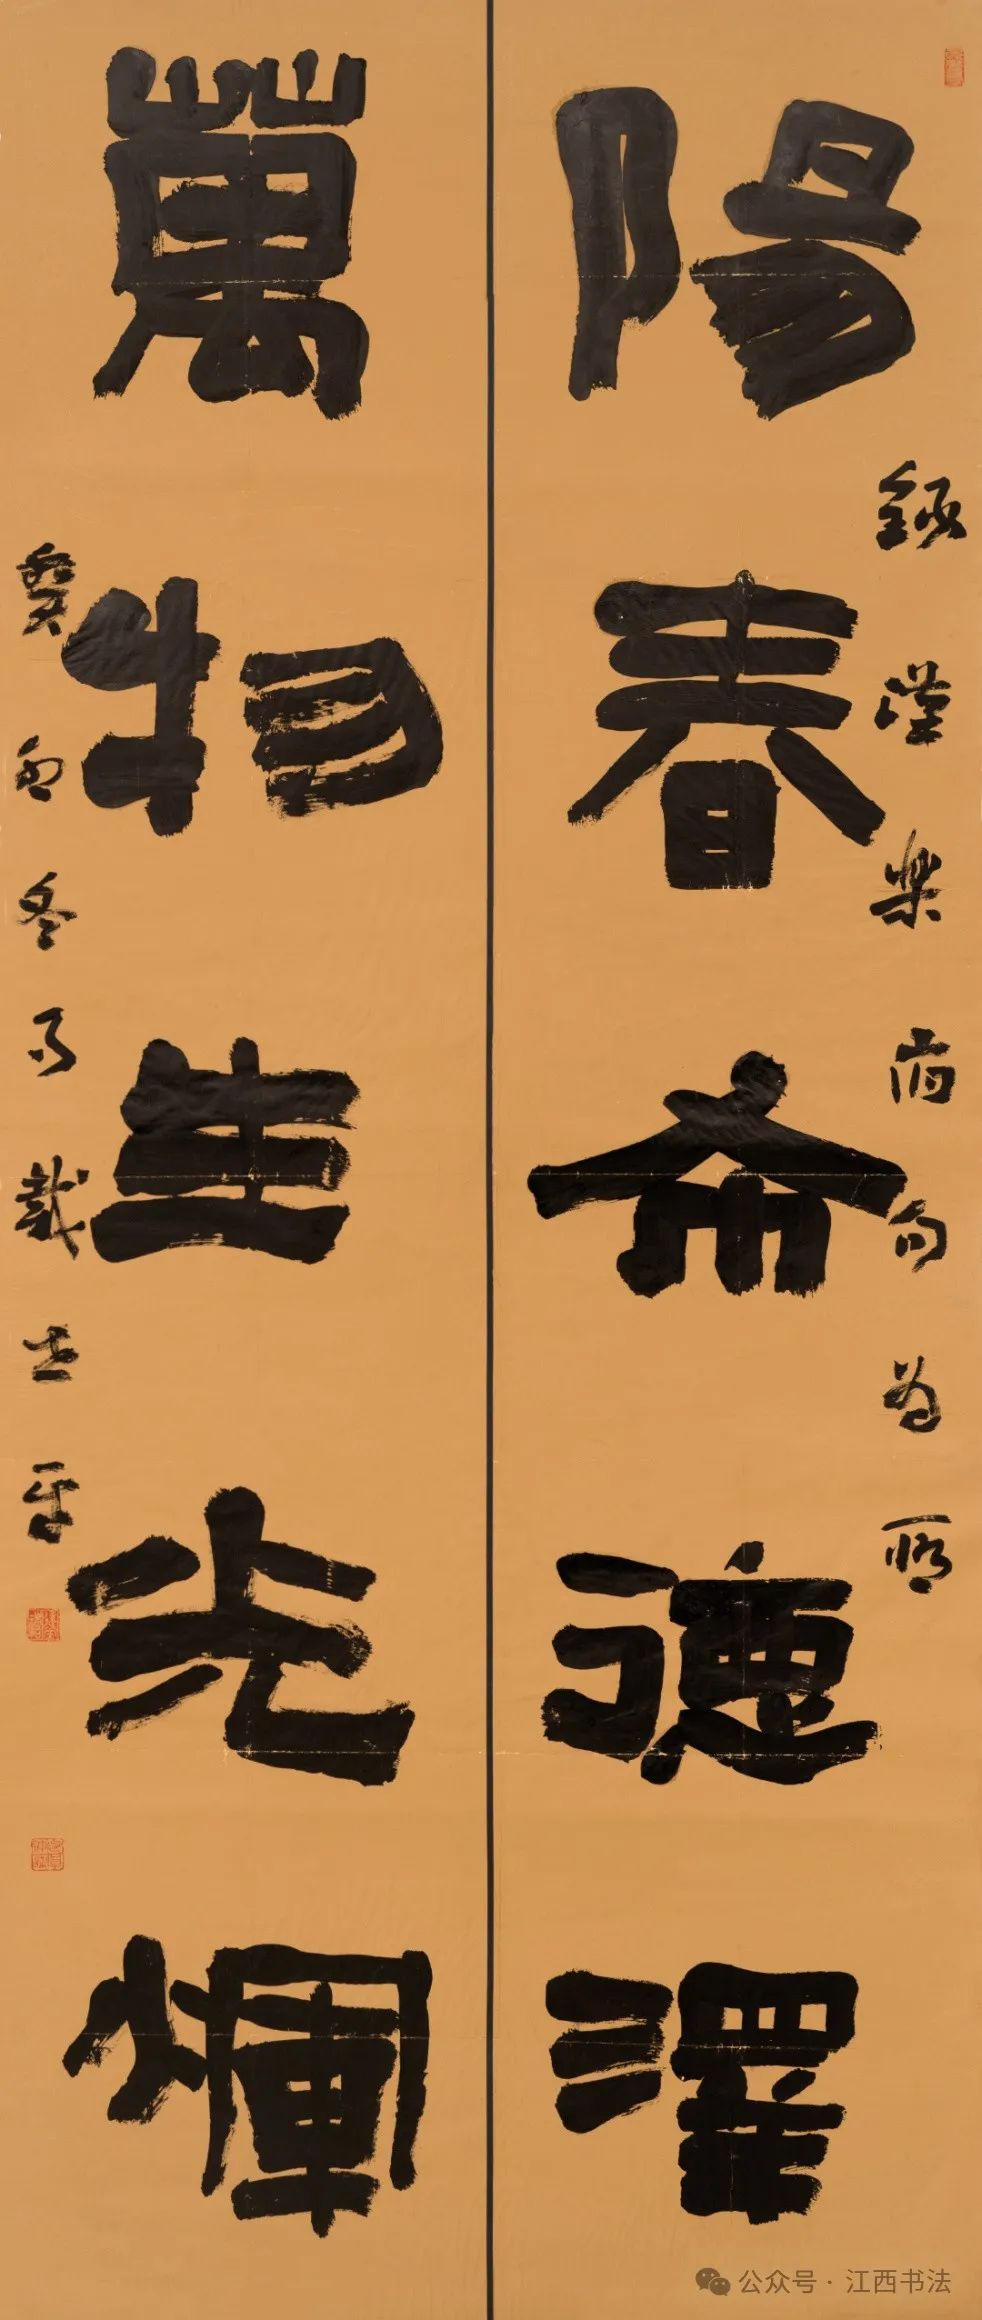 陽春布德澤
錄漢樂府句為聯
萬物生光輝
癸卯冬月戴志平
公众号·江西书法